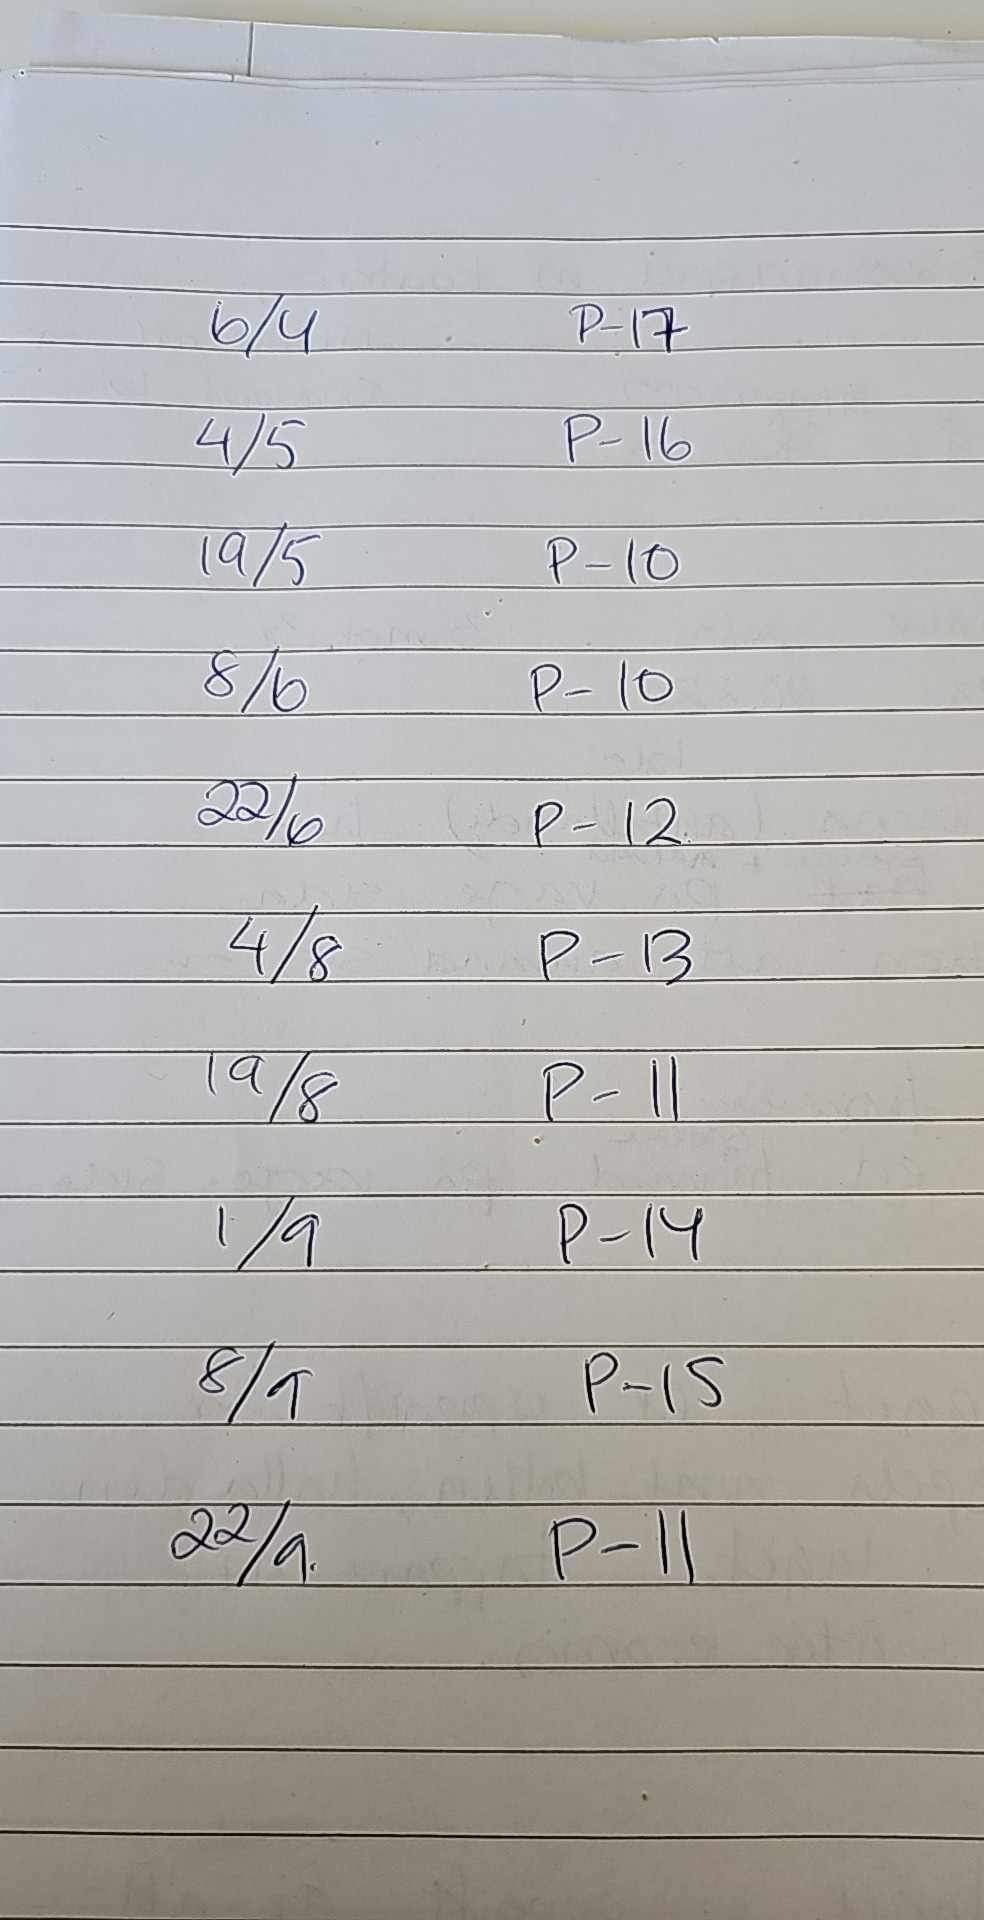 6/4 P-17
4/5 P-16
19/5 P-10
8/6 P-10
22/6 P-12
4/8 P-13
19/8 P-11
1/9 P-14
8/9 P-15
22/9. P-11